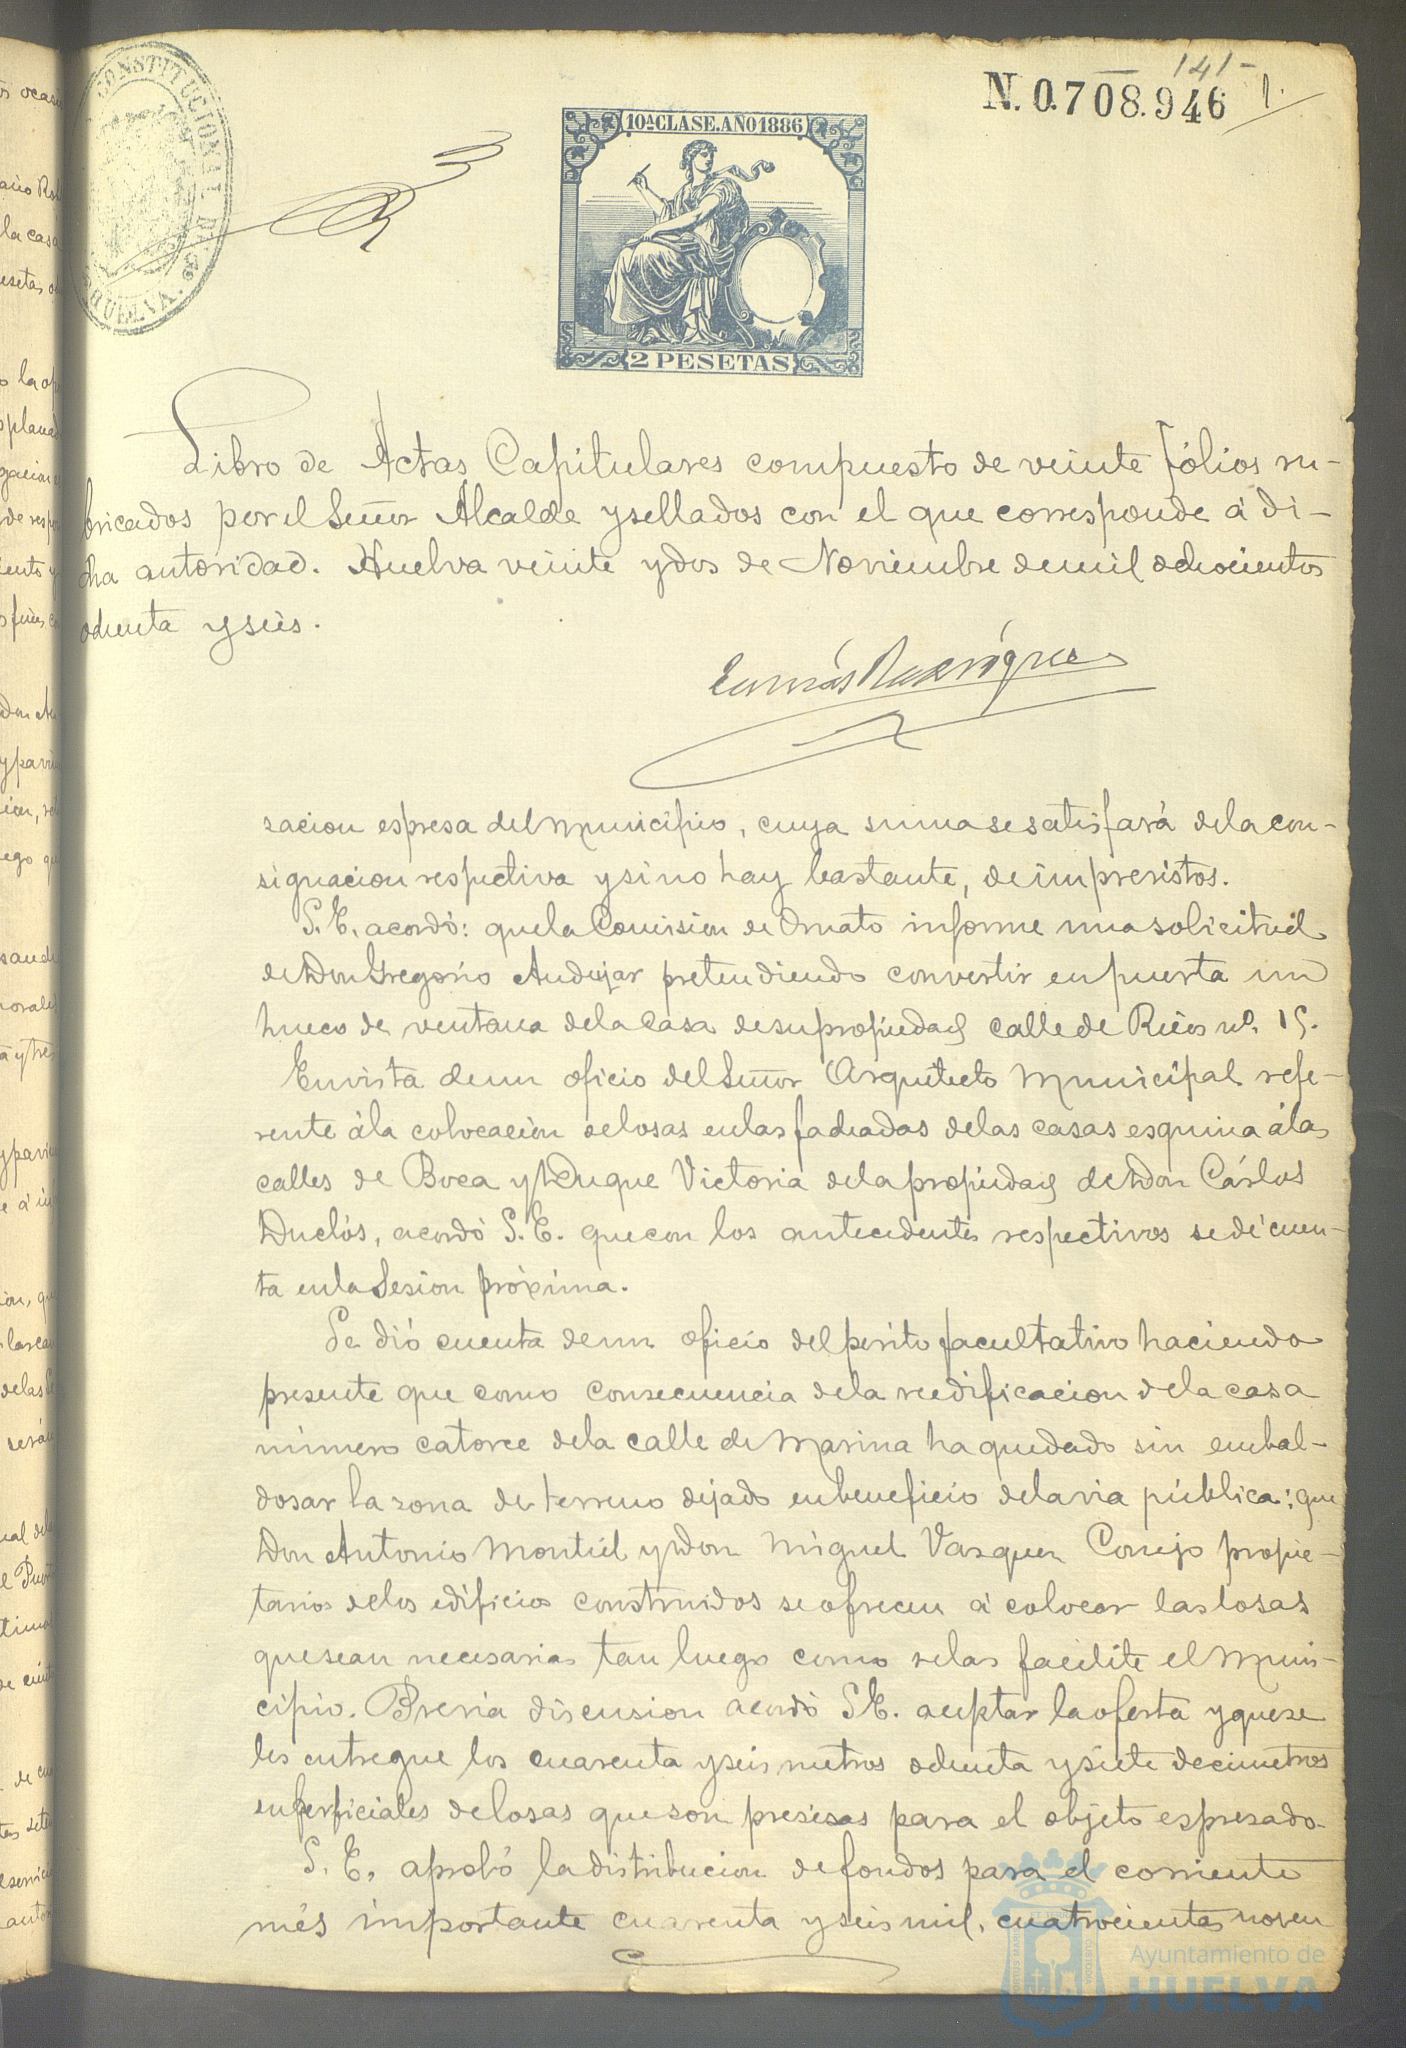 141-
N. 0.708.946 1.
CONSTITUCIONAL
HUELVA.
10ª CLASE. AÑO 1886
2 PESETAS
Libro de Actas Capitulares compuesto de veinte fólios ru-
bricados por el Señor Alcalde y sellados con el que corresponde á di-
cha autoridad. Huelva veinte y dos de Noviembre de mil ochocientos
ochenta y seis.
Tomás Rodríguez
zacion espresa del Municipio, cuya suma se satisfará de la con-
signacion respectiva y si no hay bastante, de imprevistos.
S. E. acordó: que la Comision de Ornato informe una solicitud
de Don Gregorio Andujar pretendiendo convertir en puerta un
hueco de ventana de la casa de su propiedad calle de Ricos nº. 15.
En vista de un oficio del Señor Arquitecto Municipal refe-
rente á la colocacion de losas en las fachadas de las casas esquina á las
calles de Boca y Duque Victoria de la propiedad de Don Cárlos
Duclós, acordó S. E. que con los antecedentes respectivos se dé cuen-
ta en la Sesion próxima.
Se dió cuenta de un oficio del perito facultativo haciendo
presente que como consecuencia de la reedificacion de la casa
número catorce de la calle de Marina ha quedado sin embal-
dosar la zona de terreno dejado en beneficio de la via pública: que
Don Antonio Montiel y Don Miguel Vazquez Conejo propie-
tarios de los edificios construidos se ofrecen á colocar las losas
que sean necesarias tan luego como se las facilite el Muni-
cipio. Prévia discusion acordó S. E. aceptar la oferta y que se
les entregue los cuarenta y seis metros ochenta y siete decimetros
superficiales de losas que son presisas para el objeto espresado.
S. E. aprobó la distribucion de fondos para el corriente
més importante cuarenta y seis mil, cuatrocientas noven
Ayuntamiento de
HUELVA